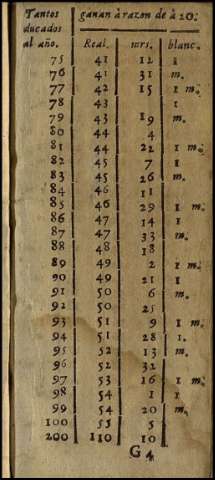 Tantos ganan à razon de à 20:
ducados
al año. Real. mrs. blanc.
75 41 12 1
76 41 31 m.
77 42 15 1 m.
78 43 1
79 43 19 m.
80 44 4
81 44 22 1 m.
82 45 7 1
83 45 26 m.
84 46 11
85 46 29 1 m.
86 47 14 1
87 47 33 m.
88 48 18
89 49 2 1 m.
90 49 21 1
91 50 6 m.
92 50 25
93 51 9 1 m.
94 51 28 1.
95 52 13 m.
96 52 32
97 53 16 1 m.
98 54 1 1
99 54 20 m.
100 55 5
200 110 10
G 4